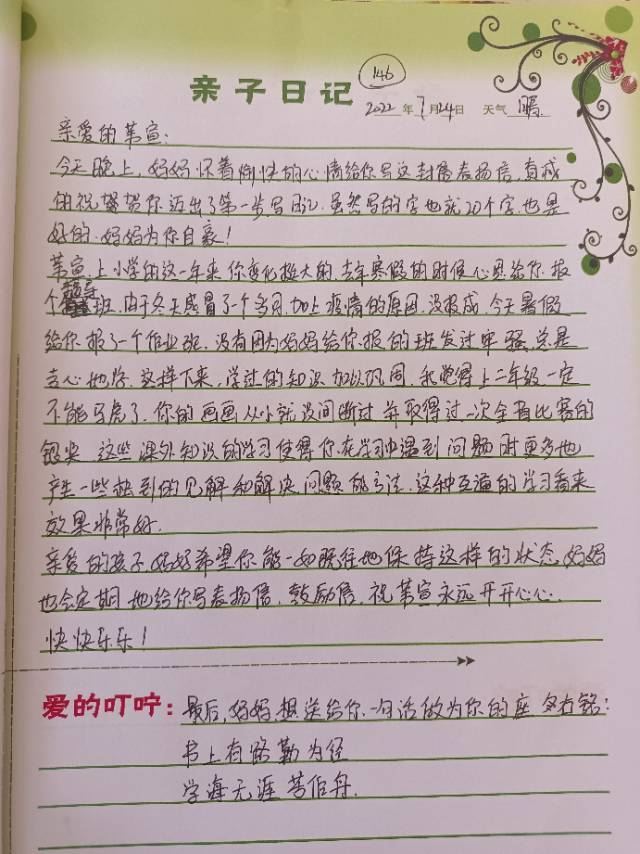 146
亲子日记 2022年7月24日 天气 晴
亲爱的苇宣:
今天晚上,妈妈怀着愉快的心情给你写这封信表扬信,真诚
的祝贺你迈出了第一步写日记.虽然写的字也就20个字.也是
好的.妈妈为你自豪!
苇宣,上小学的这一年来,你变化挺大的,去年寒假的时候心思给你报
个班,由于冬天感冒了个多月,加上疫情的原因,没报成,今天暑假
给你报了一个作业班,没有因为妈妈给你报的班发过牢骚,总是
去心地学.这样下来,学过的知识加以巩固,我觉得上二年级一定
不能马虎了.你的画画从小就没间断过并取得过一次全省比赛的
银奖 这些课外知识的学习使得你在学习中遇到问题时更多地
产生一些独到的见解和解决问题的方法.这种互通的学习看来
效果非常好.
亲爱的孩子,妈妈希望你能一如既往地保持这样的状态,妈妈
也会定期地给你写表扬信,鼓励信,祝苇宣永远开开心心.
快快乐乐!
爱的叮咛:最后,妈妈想送给你一句话做为你的座右铭:
书上有路勤为径
学海无涯苦作舟.